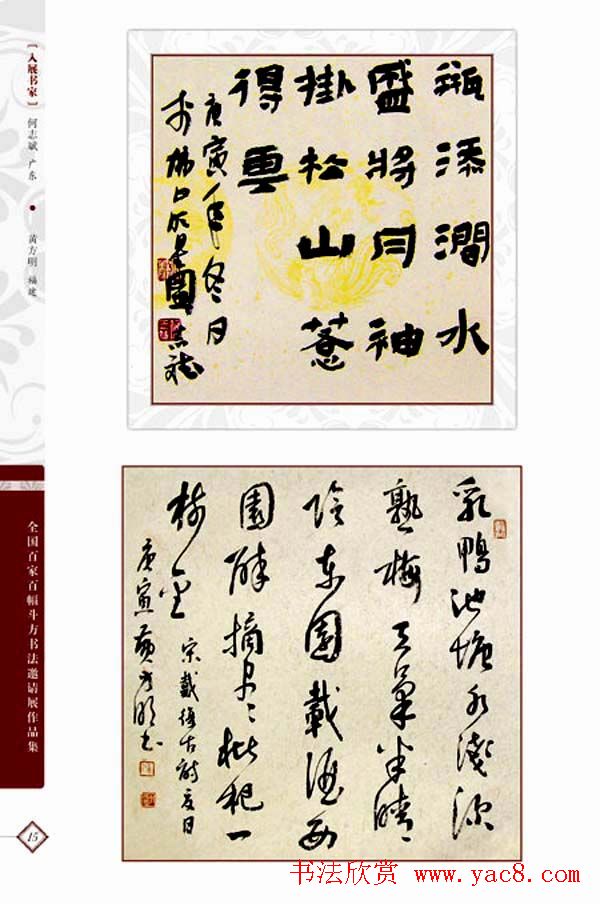 [入展书家]
何志斌 广东
黄方明 福建
全国百家百幅斗方书法邀请展作品集
15
瓶添澗水
盛將月袖
掛松山惹
得雲
庚寅年冬日
乳鴨池塘水淺深
熟梅天氣半晴
陰東園載酒西
園醉摘尽枇杷一
树金
宋戴復古詩夏日
庚寅黄方明书
书法欣赏 www.yac8.com